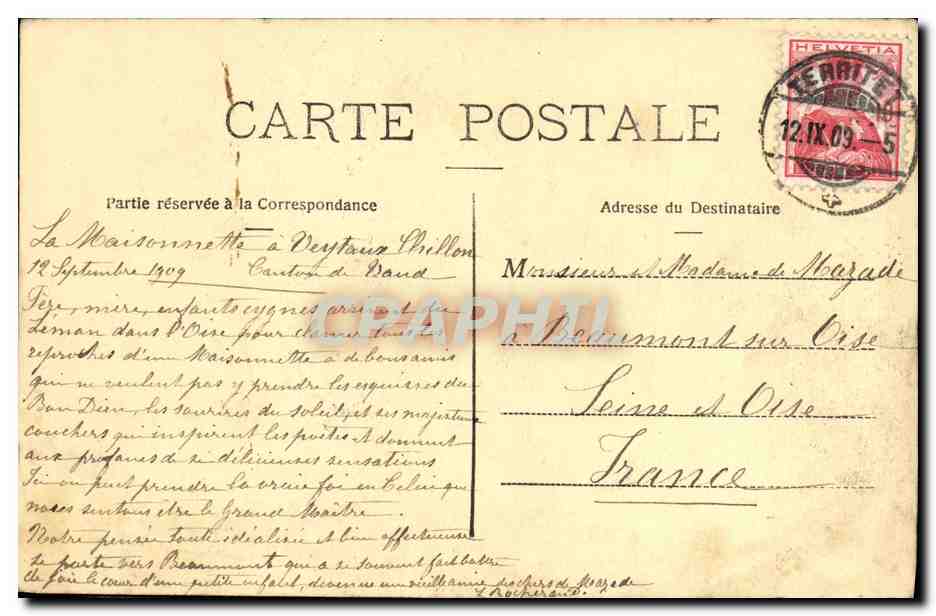 CARTE POSTALE
Partie réservée à la Correspondance
Adresse du Destinataire
HELVETIA
TERRITET
12.IX.09.-5
La Maisonnette à Veytaux Chillon
12 Septembre 1909 Canton de Vaud
Père, mère, enfants cygnes arrivent du
Léman dans l'Oise pour clamer tous les
reproches d'une Maisonnette à de bons amis
qui ne veulent pas y prendre les esquisses du
Bon Dieu, les sourires du soleil, et ses majestueux
couchers qui inspirent les poètes et donnent
aux profanes de si délicieuses sensations
Ici on peut prendre la vraie foi en Celui que
nous sentons être le Grand Maître.
Notre pensée toute idéalisée et bien affectueuse
se porte vers Beaumont qui a si souvent fait battre
de joie le cœur d'une petite enfant, devenue une vieille amie des chers de Mazade
Monsieur et Madame de Mazade
à Beaumont sur Oise
Seine et Oise
France
CPAPHTI